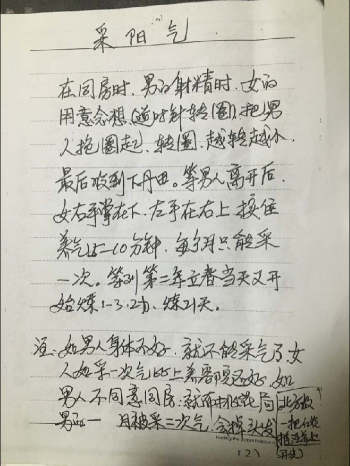 采阳气
在同房时，男的射精时，女的
用意念想（逆时针转圈），把男
人抱圈起，转圈，越转越小，
最后收到下丹田。等男人离开后，
女右手掌在下，左手在右上按住
养气15-10分钟，每3月只能采
一次。等到第二年立春当天又开
始炼1-3.2，炼21天。
注：如男人身体不好，就不能采气了，女
人如采一次气比上美容院还好，如
男人不同意同房，就
男 一月被采二次气，会掉头发
(2)